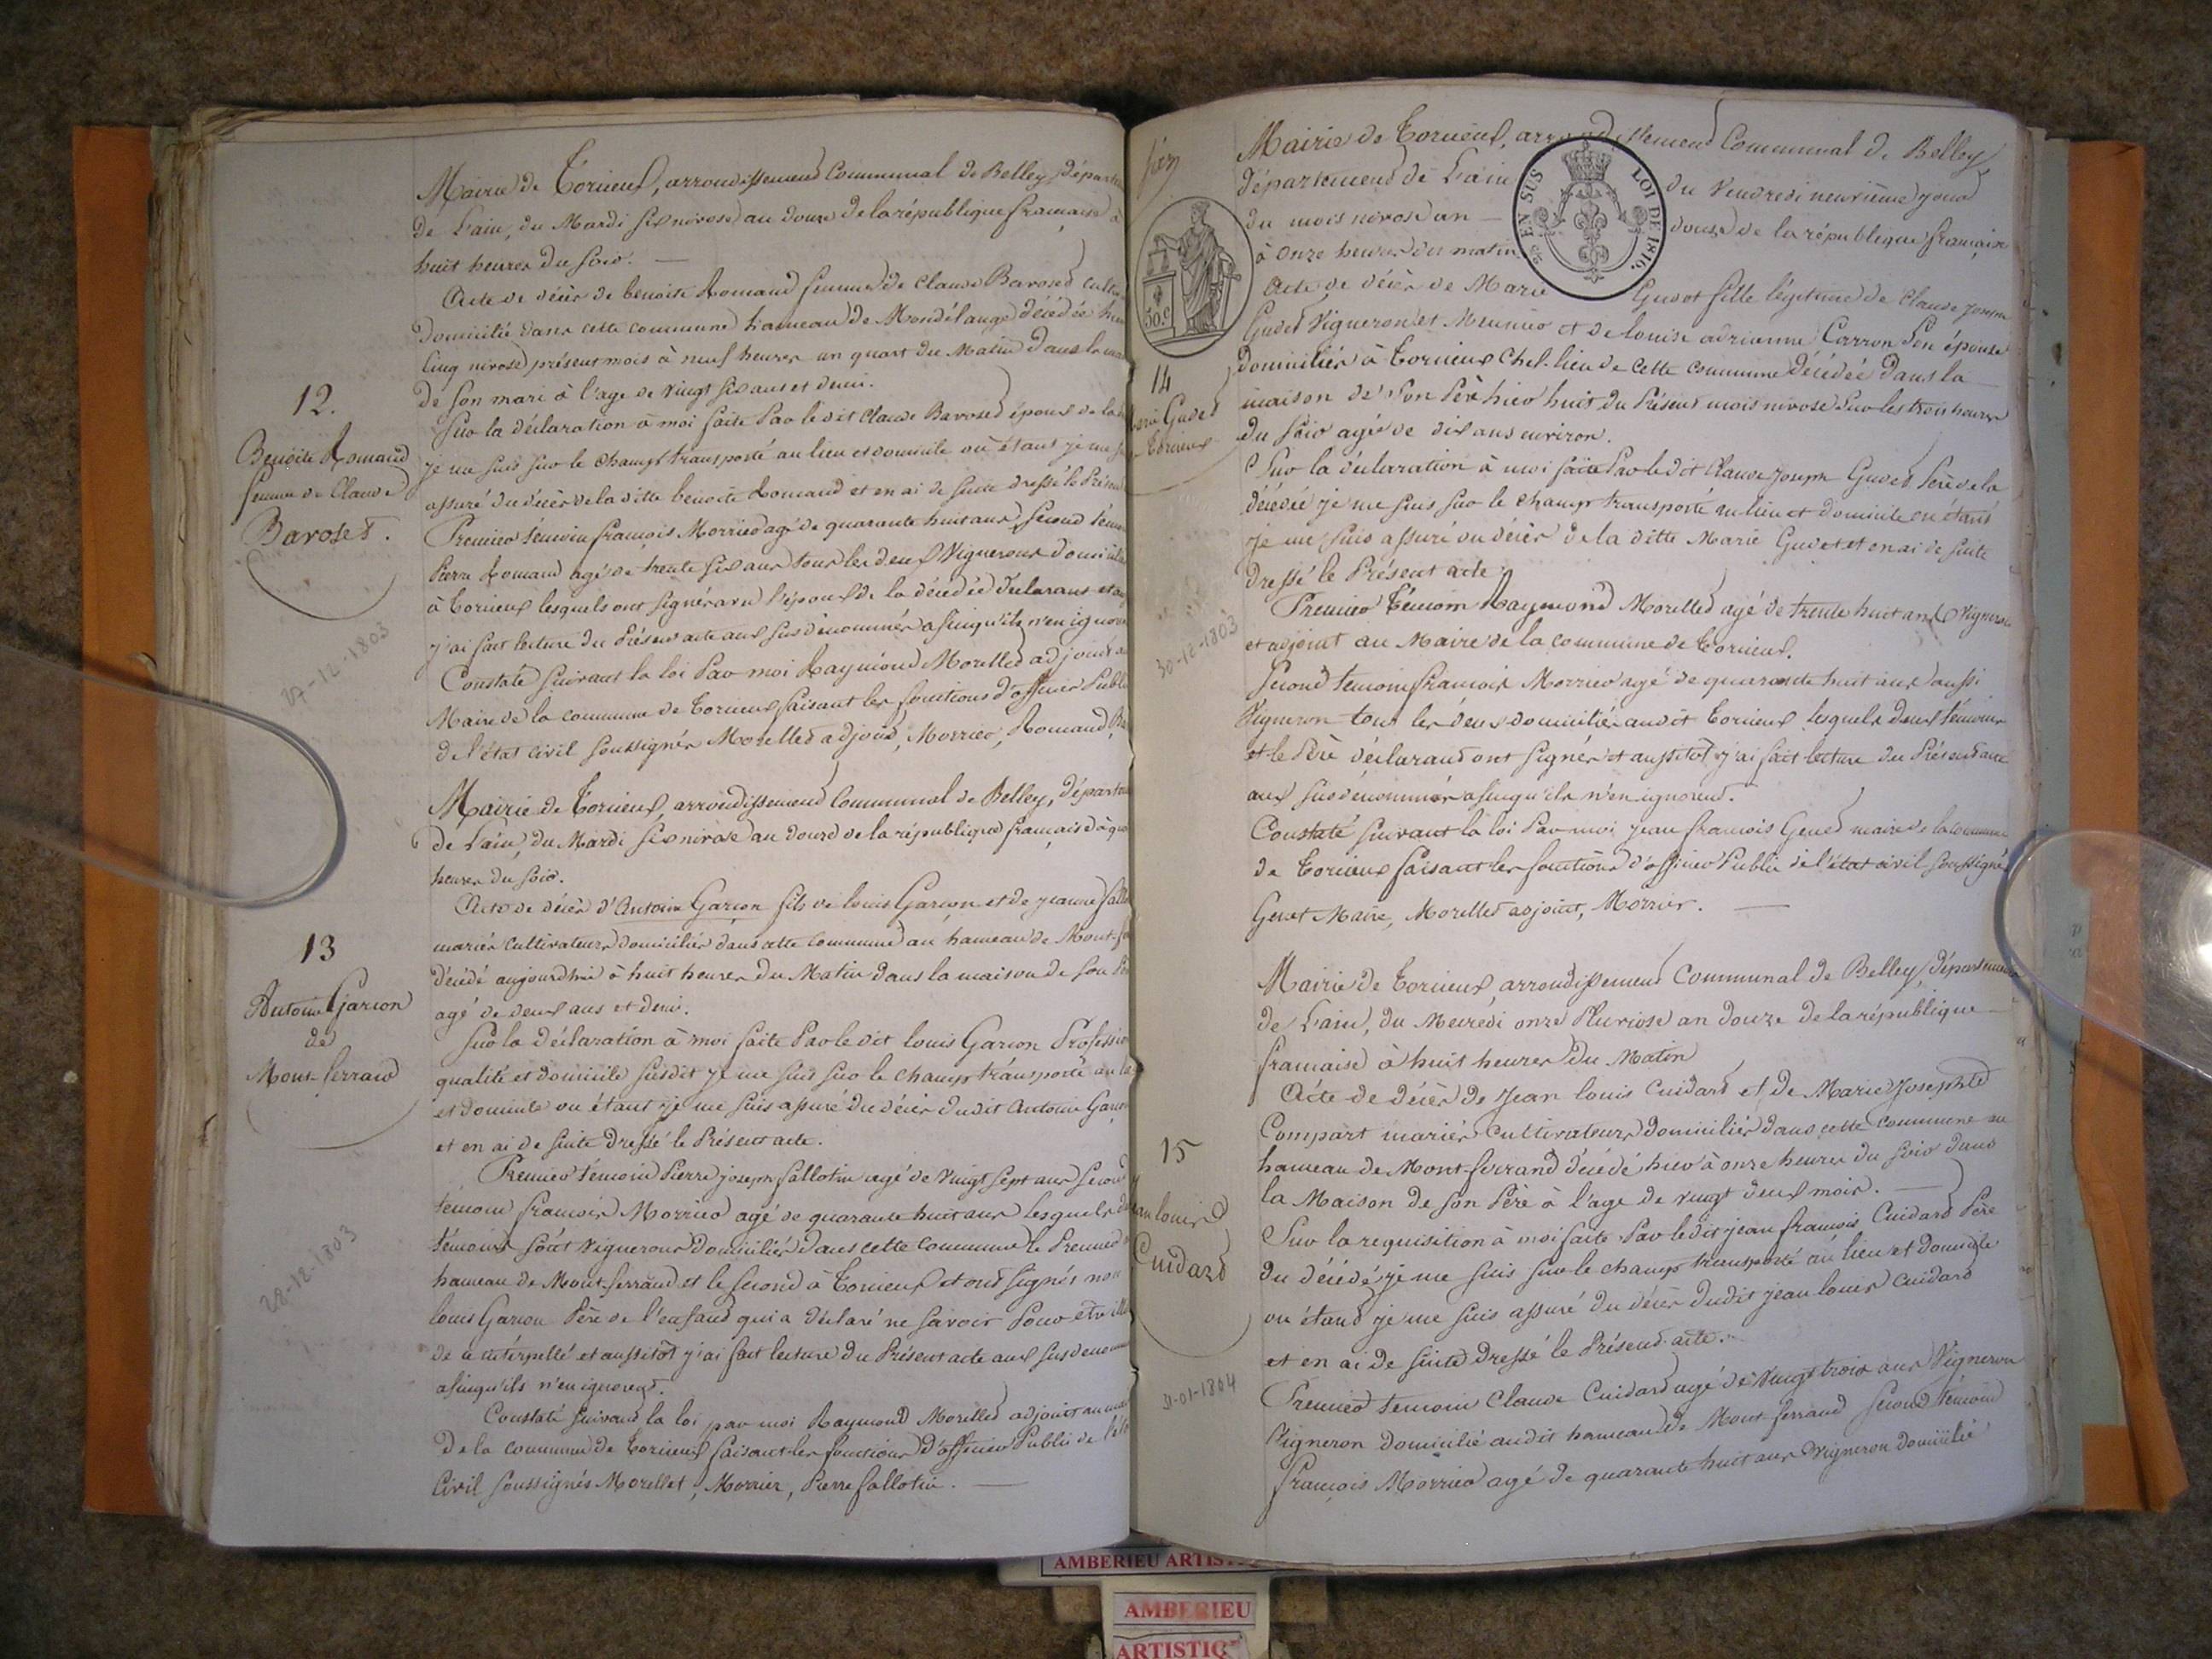 Mairie de Torcieux, arrondissement Communal de Belley, départ
de L'ain, du Mardi six nivose an douze de la république française à
huit heures du soir. —
Acte de décès de benoite Romand femme de Claude Baroset
domiciliée dans cette commune hameau de Mondélange décédée
Cinq nivose présent mois à neuf heures un quart du Matin dans la
de son mari à l'age de vingt six ans et demi.
12.
Sur la déclaration à moi faite Par le dit Claude Baroset époux de la
Benoite Romand
femme de Claude
Baroset.
je me suis sur le champs transporté au lieu et domicile où étant je me
assuré du décès de la ditte benoite Romand et en ai de suite dressé le
Premier témoin françois Morrier agé de quarante huit ans, second
Pierre Romand agé de trente six ans tous les deux Vignerons
à Torcieux lesquels ont signés avec l'époux de la décédée déclarant et
j'ai fait lecture du Présent acte aux susdénommés afin qu'ils n'en
27-12-1803
Constaté suivant la loi Par moi Raymond Morellet adjoint
Maire de la commune de Torcieux faisant les fonctions d'officier
de l'état civil soussignés Morellet adjoint, Morrier, Romand,
Mairie de Torcieux, arrondissement Communal de Belley,
de L'ain, du Mardi six nivose an douze de la république française à
heures du soir.
Acte de décès d'Antoine Garcon fils de louis Garcon et de jeanne
13
mariés cultivateurs domiciliés dans cette commune au hameau de
Antoine Garcon
de
Mont-ferrand
décédé aujourdhui à huit heures du Matin dans la maison de son
agé de deux ans et demi.
Sur la déclaration à moi faite Par le dit louis Garcon
qualité et domicile susdit je me suis sur le champs transporté au
et domicile où étant je me suis assuré du décès du dit Antoine
et en ai de suite dressé le Présent acte.
Premier témoin Pierre joseph fallotin agé de vingt sept ans
témoin françois Morrier agé de quarante huit ans lesquels
témoins sont vignerons domiciliés dans cette commune le Premier
hameau de Mont-ferrand et le second à Torcieux et ont signés non
28-12-1803
louis Garcon Père de l'enfant qui a déclaré ne savoir Pour
de ce interpellé et aussitôt j'ai fait lecture du Présent acte aux
afin qu'ils n'en ignorent.
Constaté suivant la loi par moi Raymond Morellet adjoint
de la commune de Torcieux faisant les fonctions d'officier Public de
Civil soussignés Morellet, Morrier, Pierre fallotin. —
Mairie de Torcieux, arrondissement Communal de Belley
département de L'ain du Vendredi neuvième jour
du mois nivose an — douze de la république française
à onze heures du matin
EN SUS
LOI DE 1816.
Acte de décès de Marie Gudet fille légitime de Claude joseph
50.c
Gudet Vigneron et Meunier et de louise adrienne Carron son épouse
domiciliés à Torcieux Chef-lieu de cette commune décédée dans la
14
Gudet
Torcieux
maison de son Père hier huit du Présent mois nivose sur les trois heures
du soir agée de dix ans environ.
Sur la déclaration à moi faite Par le dit Claude Joseph Gudet Père de la
décédée je me suis sur le champs transporté au lieu et domicile où étant
je me suis assuré du décès de la ditte Marie Gudet et en ai de suite
dressé le Présent acte.
Premier Témoin Raymond Morellet agé de trente huit ans Vigneron
et adjoint au Maire de la commune de Torcieux.
30-12-1803
Second temoin françois Morrier agé de quarante huit ans aussi
Vigneron tous les deux domiciliés audit Torcieux lesquels deux témoins
et le Père déclarant ont signés et aussitôt j'ai fait lecture du Présent acte
aux susdénommés afin qu'ils n'en ignorent.
Constaté suivant la loi Par moi jean françois Genet maire de la commune
de Torcieux faisant les fonctions d'officier Public de l'état civil soussignés
Genet Maire, Morellet adjoint, Morrier. —
Mairie de Torcieux, arrondissement Communal de Belley, département
de L'ain, du Mercredi onze Pluviose an douze de la république
française à huit heures du Matin
Acte de décès de Jean louis Cuidard et de Marie Josephte
15
Compart mariés cultivateurs domiciliés dans cette commune au
hameau de Mont-ferrand décédé hier à onze heures du soir dans
la Maison de son Père à l'age de vingt deux mois. —
louis
Cuidard
Sur la requisition à moi faite Par le dit jean françois Cuidard Père
du décédé je me suis sur le champs transporté au lieu et domicile
où étant je me suis assuré du décès dudit jean louis Cuidard
et en ai de suite dressé le Présent acte.
31-01-1804
Premier temoin Claude Cuidard agé de vingt trois ans Vigneron
Vigneron domicilié audit hameau de Mont-ferrand second témoin
françois Morrier agé de quarante huit ans Vigneron domicilié
AMBERIEU ARTIS
AMBERIEU
ARTISTIQ